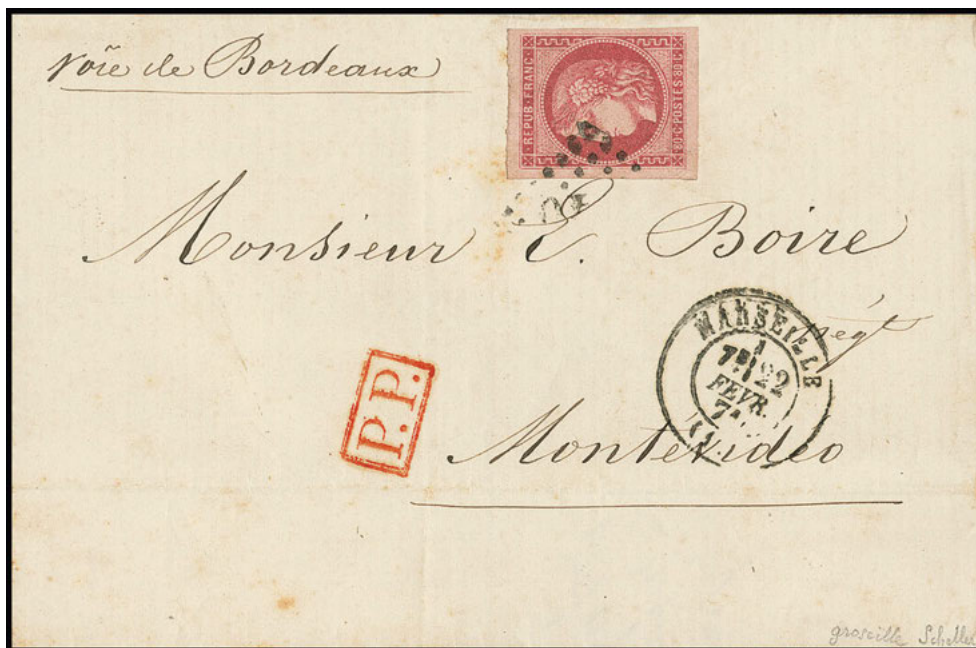 voie de Bordeaux
REPUB. FRANC.
80.C.POSTES.80.C.
Monsieur E. Boire
négt
MARSEILLE
22
FEVR.
P.P.
Montevideo
groseille